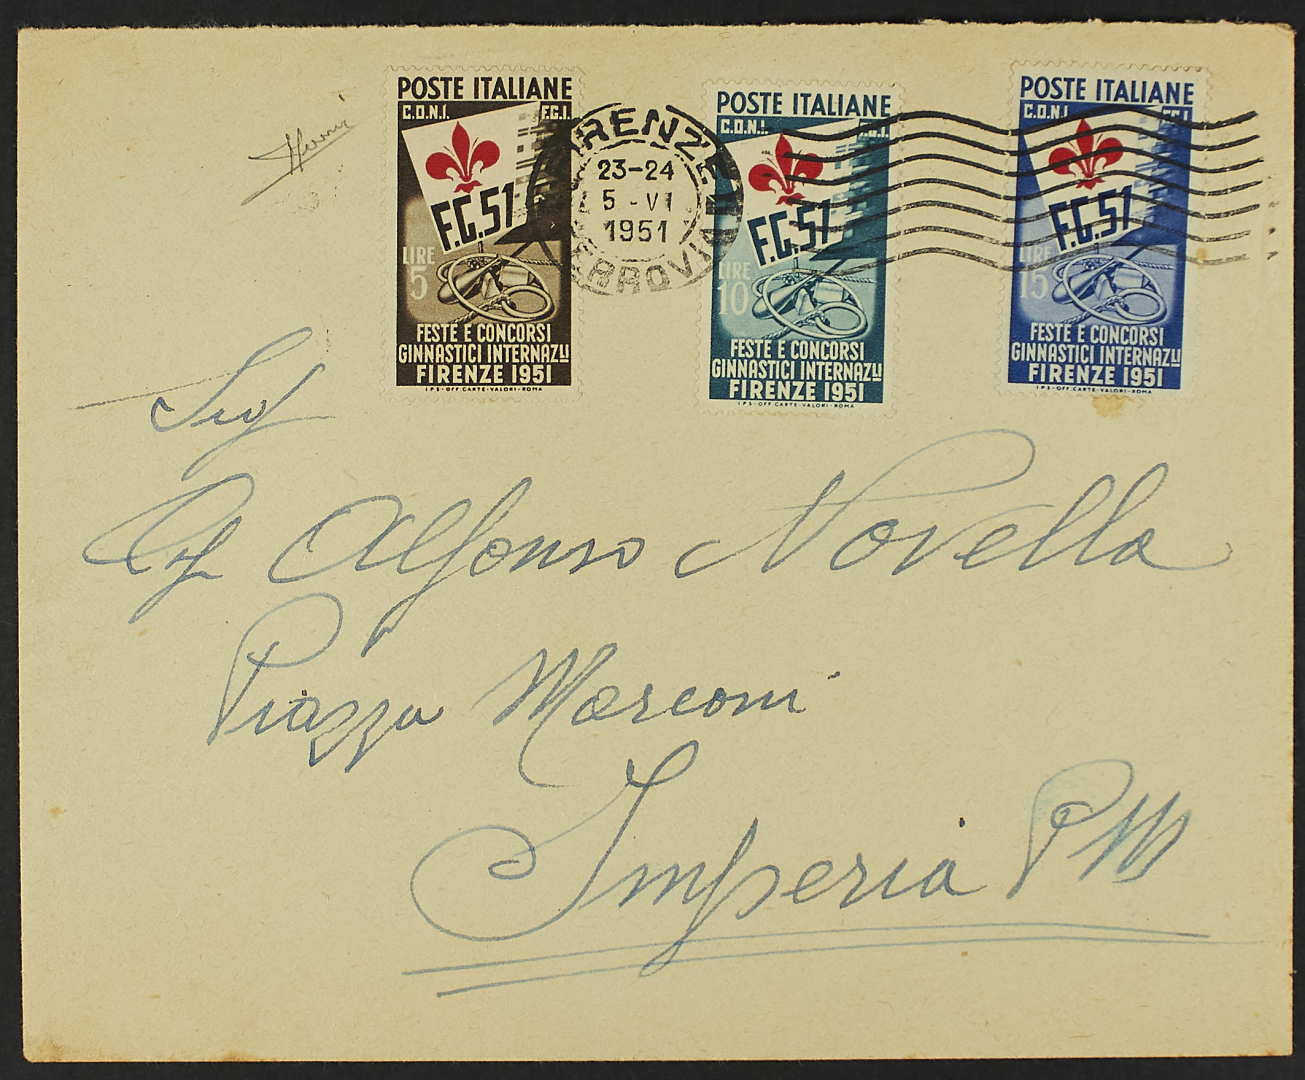 POSTE ITALIANE
C.O.N.I. F.G.I.
F.G.51
LIRE
5
FESTE E CONCORSI
GINNASTICI INTERNAZLI
FIRENZE 1951
I P S - OFF. CARTE - VALORI - ROMA
FIRENZE
23-24
5 - VI
1951
FERROVIA
POSTE ITALIANE
C.O.N.I. F.G.I.
F.G.51
LIRE
10
FESTE E CONCORSI
GINNASTICI INTERNAZLI
FIRENZE 1951
I P S - OFF. CARTE - VALORI - ROMA
POSTE ITALIANE
C.O.N.I. F.G.I.
F.G.51
LIRE
15
FESTE E CONCORSI
GINNASTICI INTERNAZLI
FIRENZE 1951
I P S - OFF. CARTE - VALORI - ROMA
Sig
Alfonso Novella
Piazza Marconi
Imperia PM